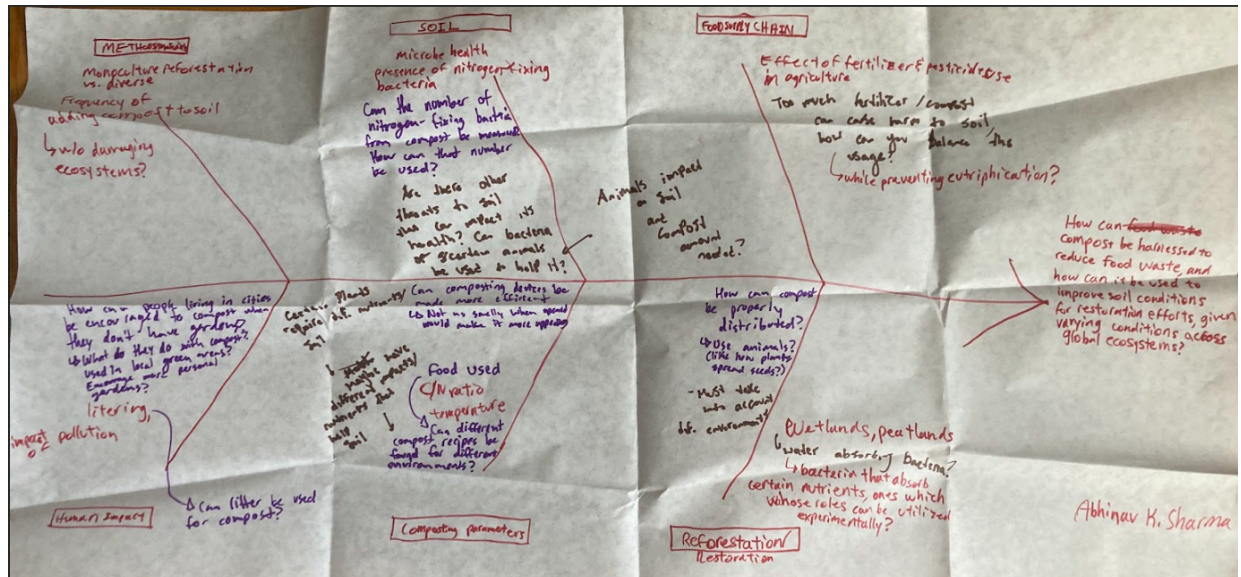 METHODS
monoculture reforestation
vs. diverse
Frequency of
adding compost to soil
↳ w/o damaging
ecosystems?
SOIL
microbe health
presence of nitrogen-fixing
bacteria
Can the number of
nitrogen-fixing bactria
from compost be measured
How can that number
be used?
Are there other
threats to soil
that can impact its
health? Can bacteria
or certain animals
be used to help it?
Animals impact
on soil
and
compost
amount
needed?
FOOD SUPPLY CHAIN
Effect of fertilizer & pesticide use
in agriculture
Too much fertilizer/compost
can cause harm to soil,
how can you balance this
usage?
↳ while preventing eutriphication?
How can food waste
compost be harnessed to
reduce food waste, and
how can it be used to
improve soil conditions
for restoration efforts, given
varying conditions across
global ecosystems?
How can people living in cities
be encouraged to compost when
they don't have gardens?
↳ What do they do with compost?
used in local green areas?
Encourage more personal
gardens?
litering,
impact of pollution
↳ Can litter be used
for compost?
Human Impact
Certain plants
require dif. nutrients/
soil
maybe have
different impacts/
nutrients that
help
soil
Can composting devices be
made more efficient
↳ Not so smelly when opened
would make it more appealing
food used
C/N ratio
temperature
Can different
compost recipes be
found for different
environments?
Composting parameters
How can compost
be properly
distributed?
↳ Use animals?
(like how plants
spread seeds?)
- Must take
into account
dif. environments
Wetlands, peatlands
↳ water absorbing bacteria?
↳ bacteria that absorb
certain nutrients, ones which
whose roles can be utilized
experimentally?
Reforestation/
Restoration
Abhinav K. Sharma